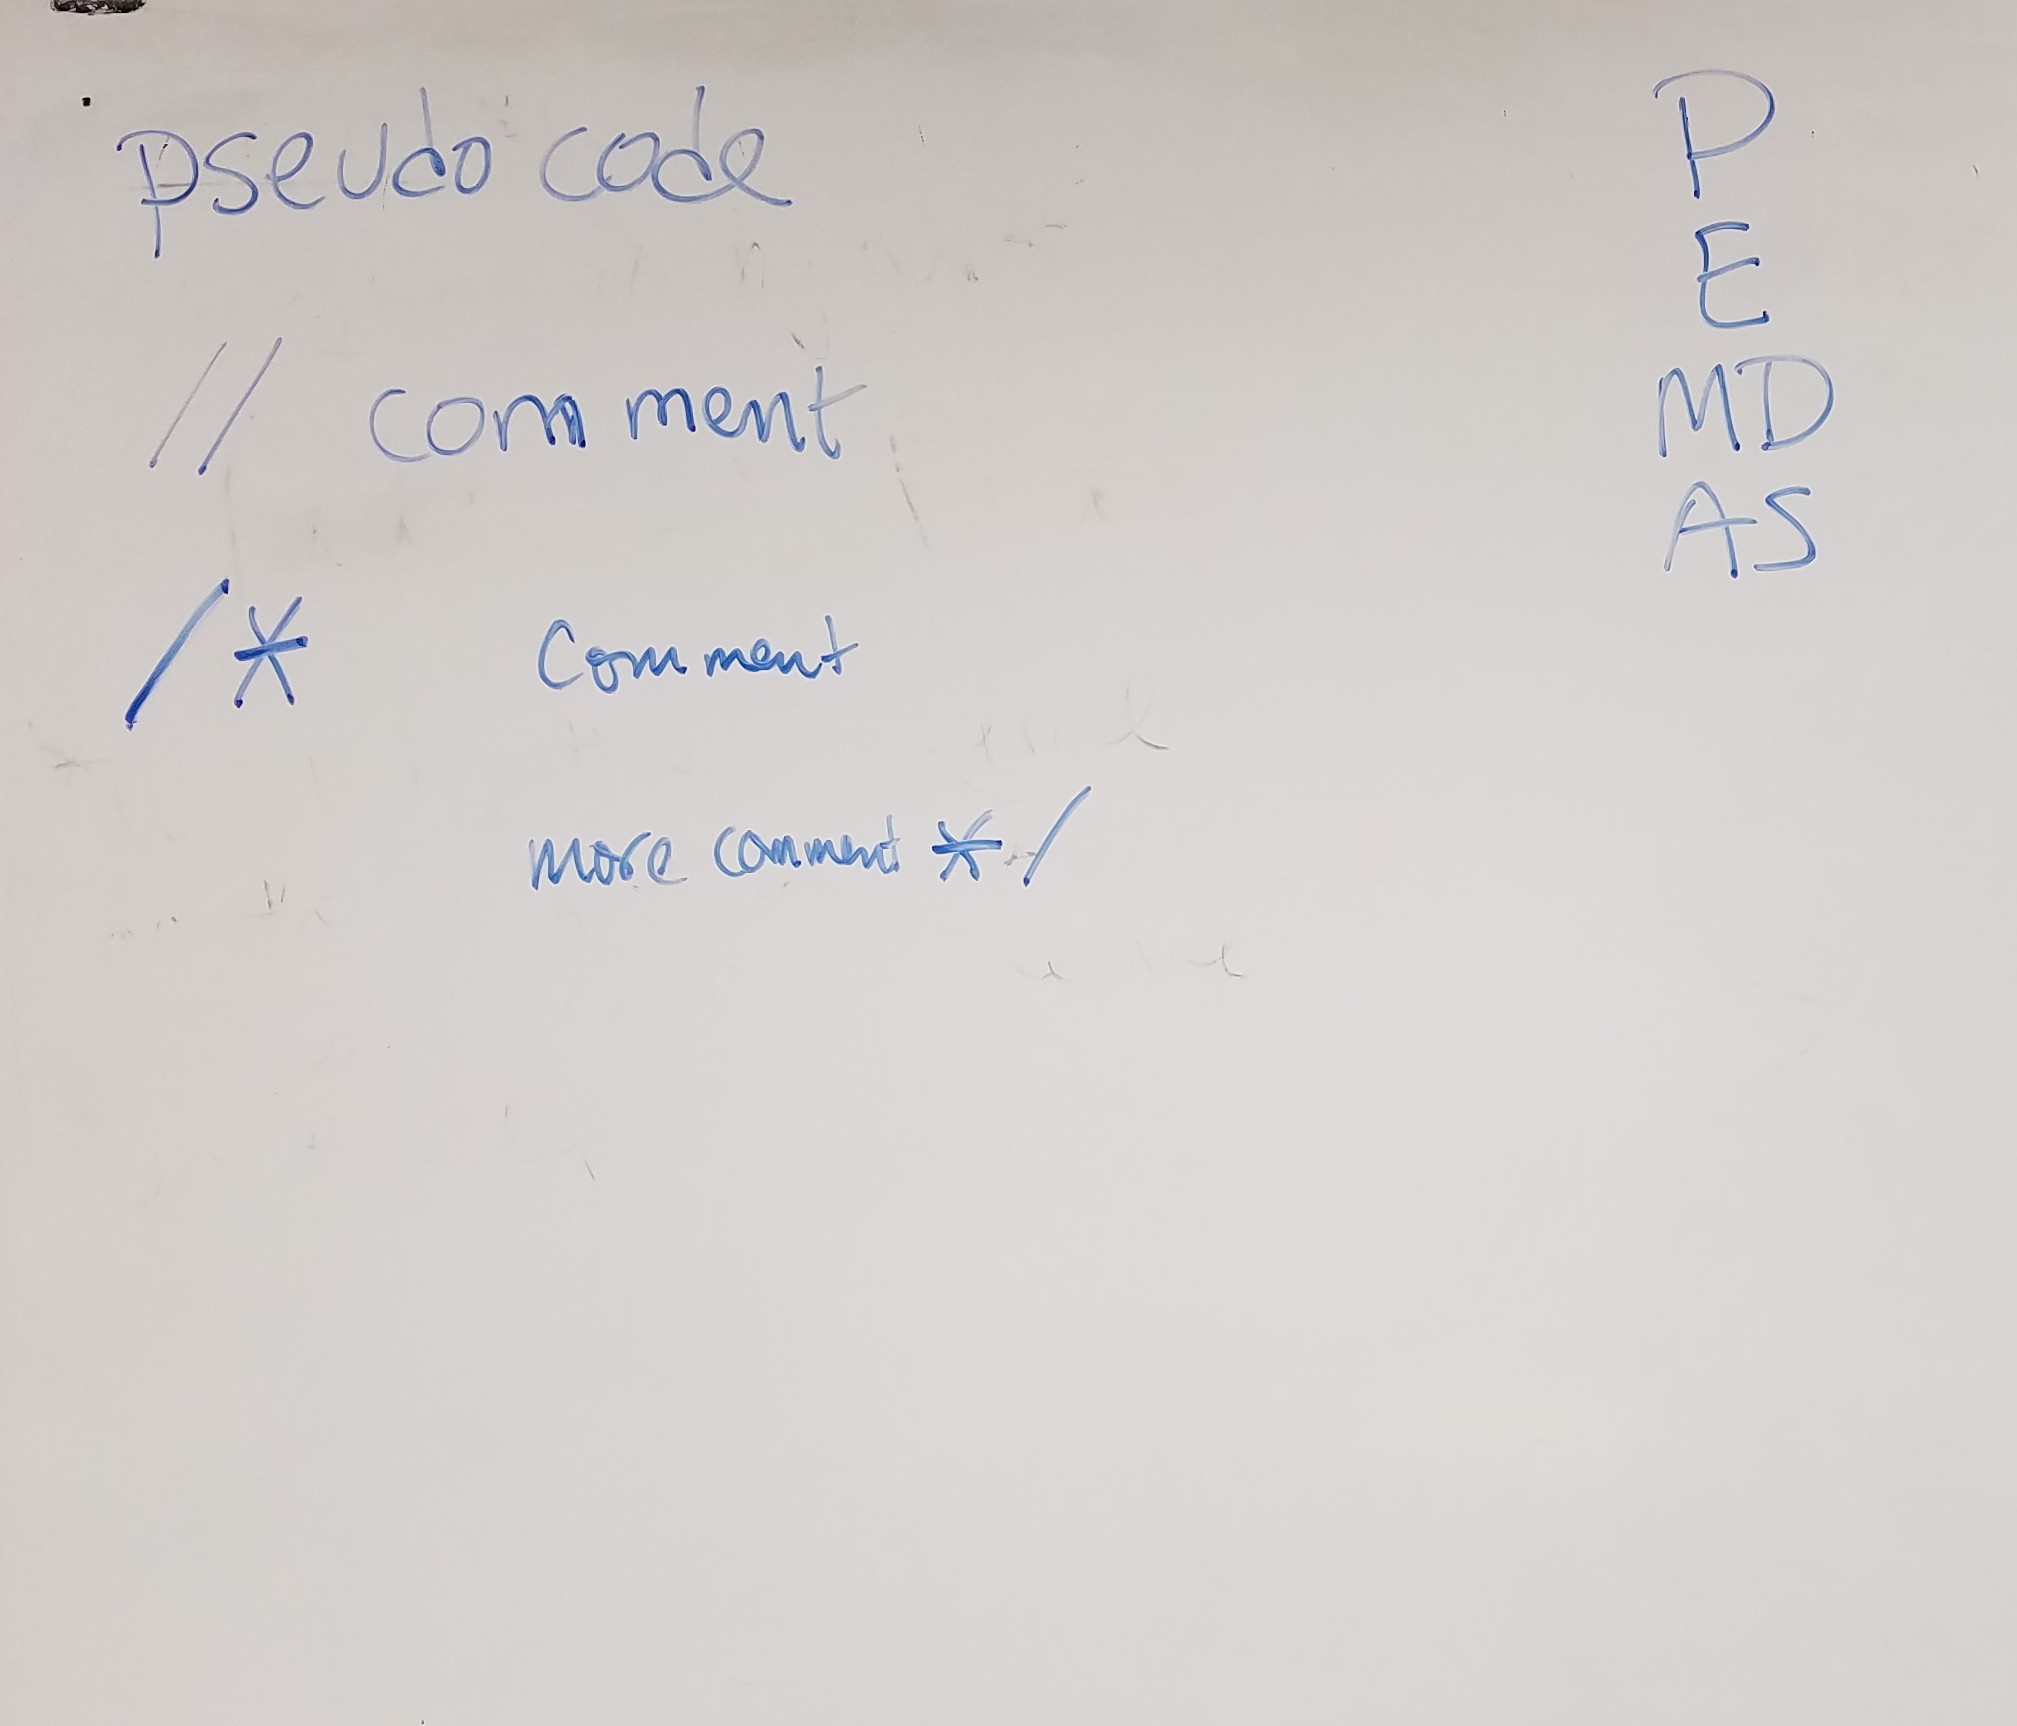 pseudo code
// comment
/* Comment
more comment */
P
E
MD
AS